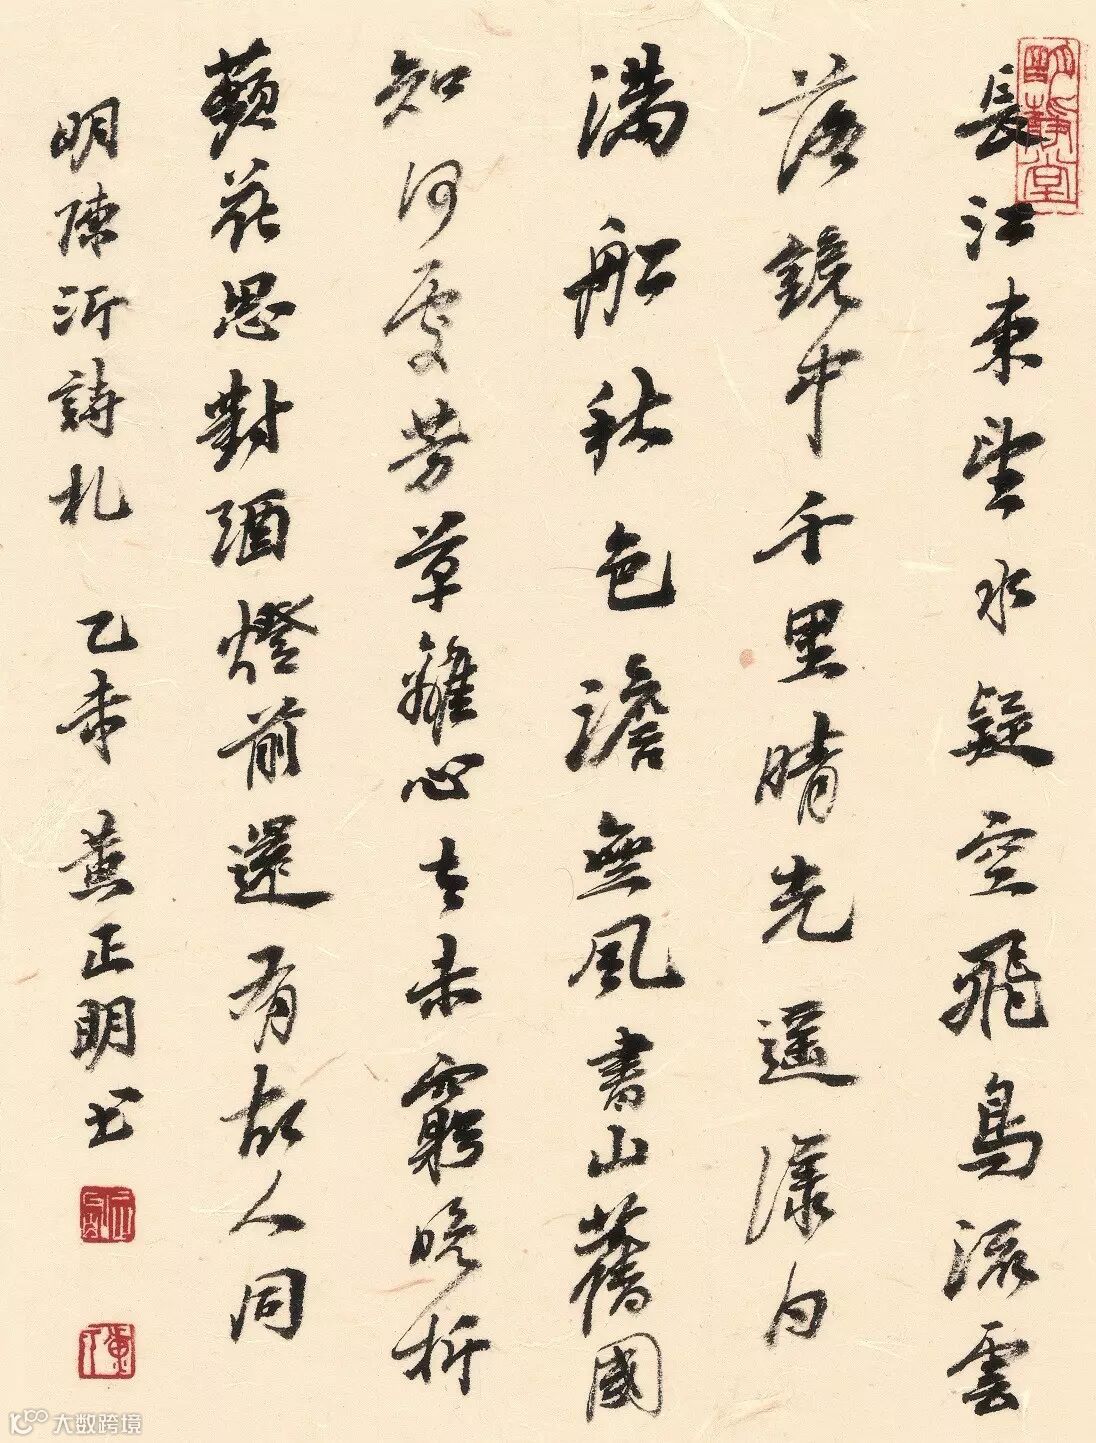 長江東望水疑空飛鳥流雲
落鏡中千里晴光遥漾白
满船秋色澹無風書山舊國
知何處芳草離心古未窮晚折
蘋花思對酒燈前還有故人同
明陳沂詩札 乙未 黄正明书
静堂
大数跨境